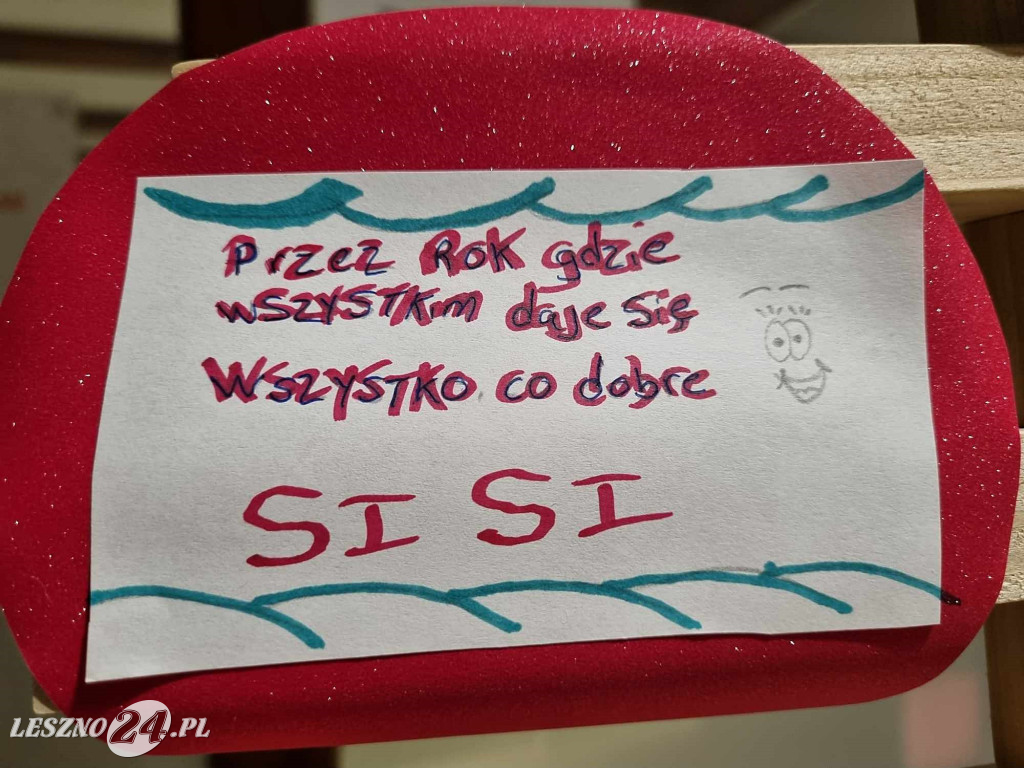 Przez Rok gdzie
wszystkim daje się
Wszystko co dobre
SI SI
LESZNO24.PL